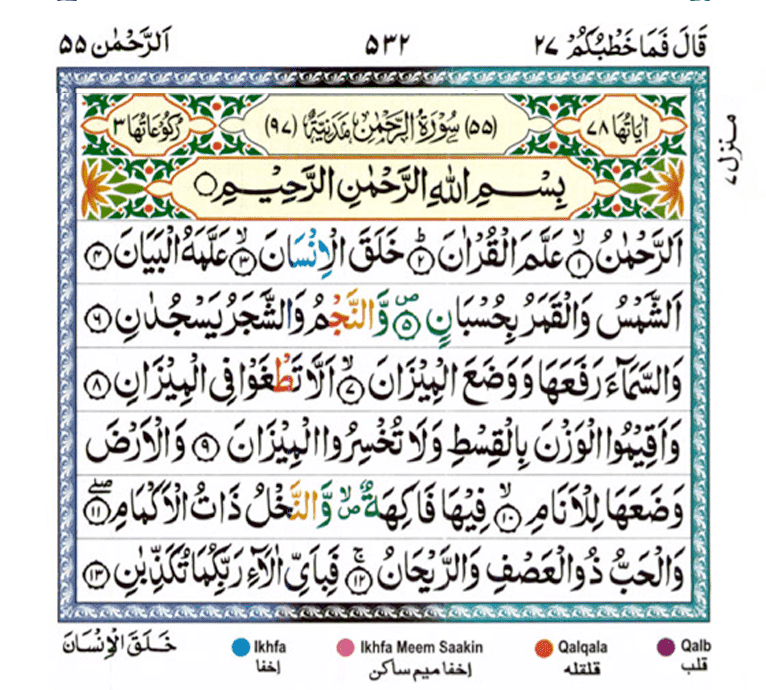 قَالَ فَمَا خَطْبُكُمْ ٢٧ ٥٣٢ اَلرَّحْمٰن ٥٥
اٰيَاتُهَا ٧٨ (٥٥) سُوْرَةُ الرَّحْمٰنِ مَدَنِيَّةٌ (٩٧) رُكُوْعَاتُهَا ٣
منزل ٧
بِسْمِ اللّٰهِ الرَّحْمٰنِ الرَّحِيْمِ
اَلرَّحْمٰنُ ۙ﴿١﴾ عَلَّمَ الْقُرْاٰنَ ؕ﴿٢﴾ خَلَقَ الْاِنْسَانَ ۙ﴿٣﴾ عَلَّمَهُ الْبَيَانَ ﴿٤﴾
اَلشَّمْسُ وَالْقَمَرُ بِحُسْبَانٍ ۪﴿٥﴾ وَّالنَّجْمُ وَالشَّجَرُ يَسْجُدٰنِ ﴿٦﴾
وَالسَّمَآءَ رَفَعَهَا وَوَضَعَ الْمِيْزَانَ ۙ﴿٧﴾ اَلَّا تَطْغَوْا فِى الْمِيْزَانِ ﴿٨﴾
وَاَقِيْمُوا الْوَزْنَ بِالْقِسْطِ وَلَا تُخْسِرُوا الْمِيْزَانَ ﴿٩﴾ وَالْاَرْضَ
وَضَعَهَا لِلْاَنَامِ ۙ﴿١٠﴾ فِيْهَا فَاكِهَةٌ ۪ۙ وَّالنَّخْلُ ذَاتُ الْاَكْمَامِ ۖ﴿١١﴾
وَالْحَبُّ ذُو الْعَصْفِ وَالرَّيْحَانُ ۚ﴿١٢﴾ فَبِاَىِّ اٰلَآءِ رَبِّكُمَا تُكَذِّبٰنِ ﴿١٣﴾
خَلَقَ الْاِنْسَانَ
Ikhfa Ikhfa Meem Saakin Qalqala Qalb
اخفا اخفا ميم ساكن قلقله قلب